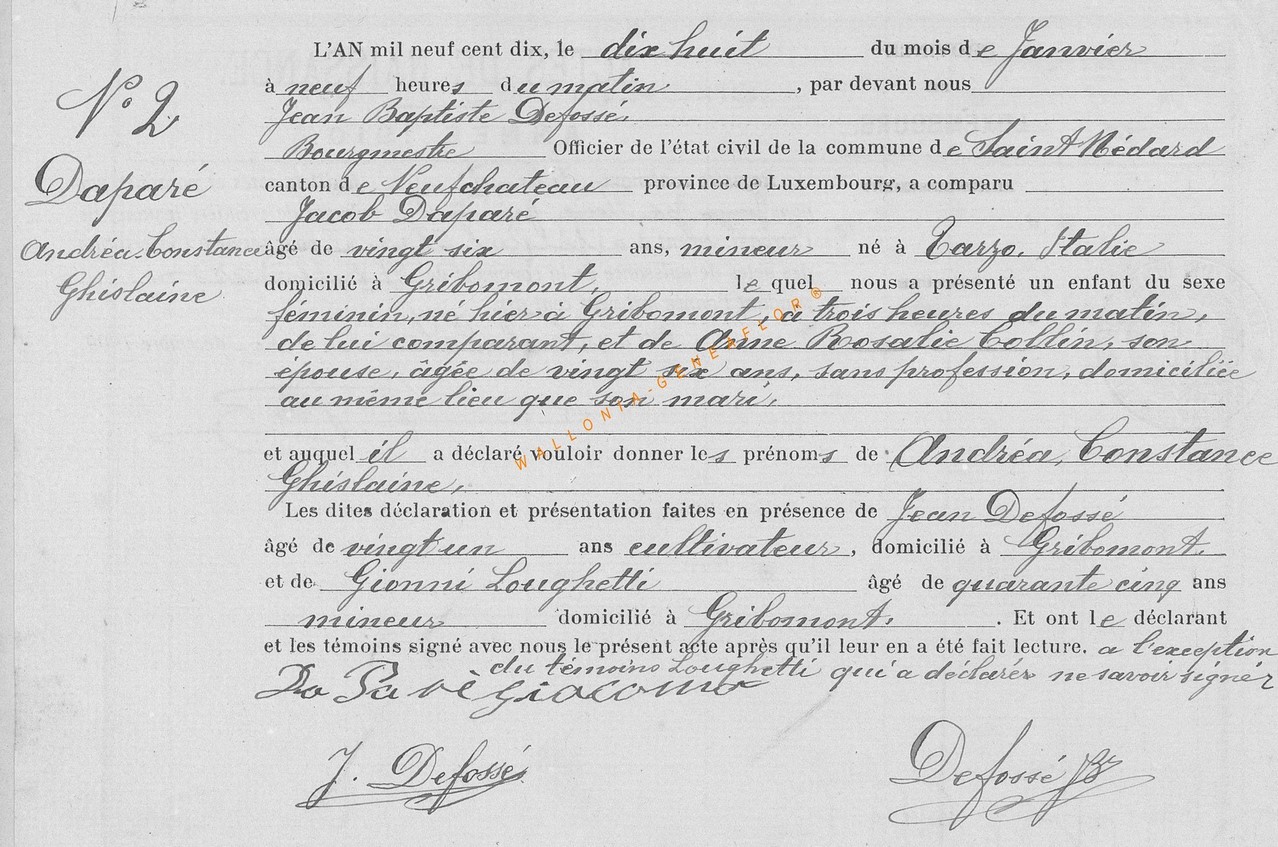 L'AN mil neuf cent dix, le dix huit du mois de Janvier
à neuf heures du matin, par devant nous
Jean Baptiste Defossé,
Bourgmestre Officier de l'état civil de la commune de Saint Médard
canton de Neufchateau province de Luxembourg, a comparu
Jacob Daparé
âgé de vingt six ans, mineur né à Tarzo, Italie
domicilié à Gribomont, le quel nous a présenté un enfant du sexe
féminin, né hier à Gribomont, à trois heures du matin,
de lui comparant, et de Anne Rosalie Collin, son
épouse, âgée de vingt six ans, sans profession, domiciliée
au même lieu que son mari,
et auquel il a déclaré vouloir donner les prénoms de Andréa, Constance
Ghislaine,
Les dites déclaration et présentation faites en présence de Jean Defossé
âgé de vingt un ans cultivateur, domicilié à Gribomont,
et de Gionni Loughetti âgé de quarante cinq ans
mineur domicilié à Gribomont. Et ont le déclarant
et les témoins signé avec nous le présent acte après qu'il leur en a été fait lecture. a l'exception
du témoins Loughetti qui a déclarér ne savoir signér
Da Parè Giacomo
J. Defossé
Defossé JB
N° 2
Daparé
Andréa Constance
Ghislaine
WALLONIA-GENEAFLOR®